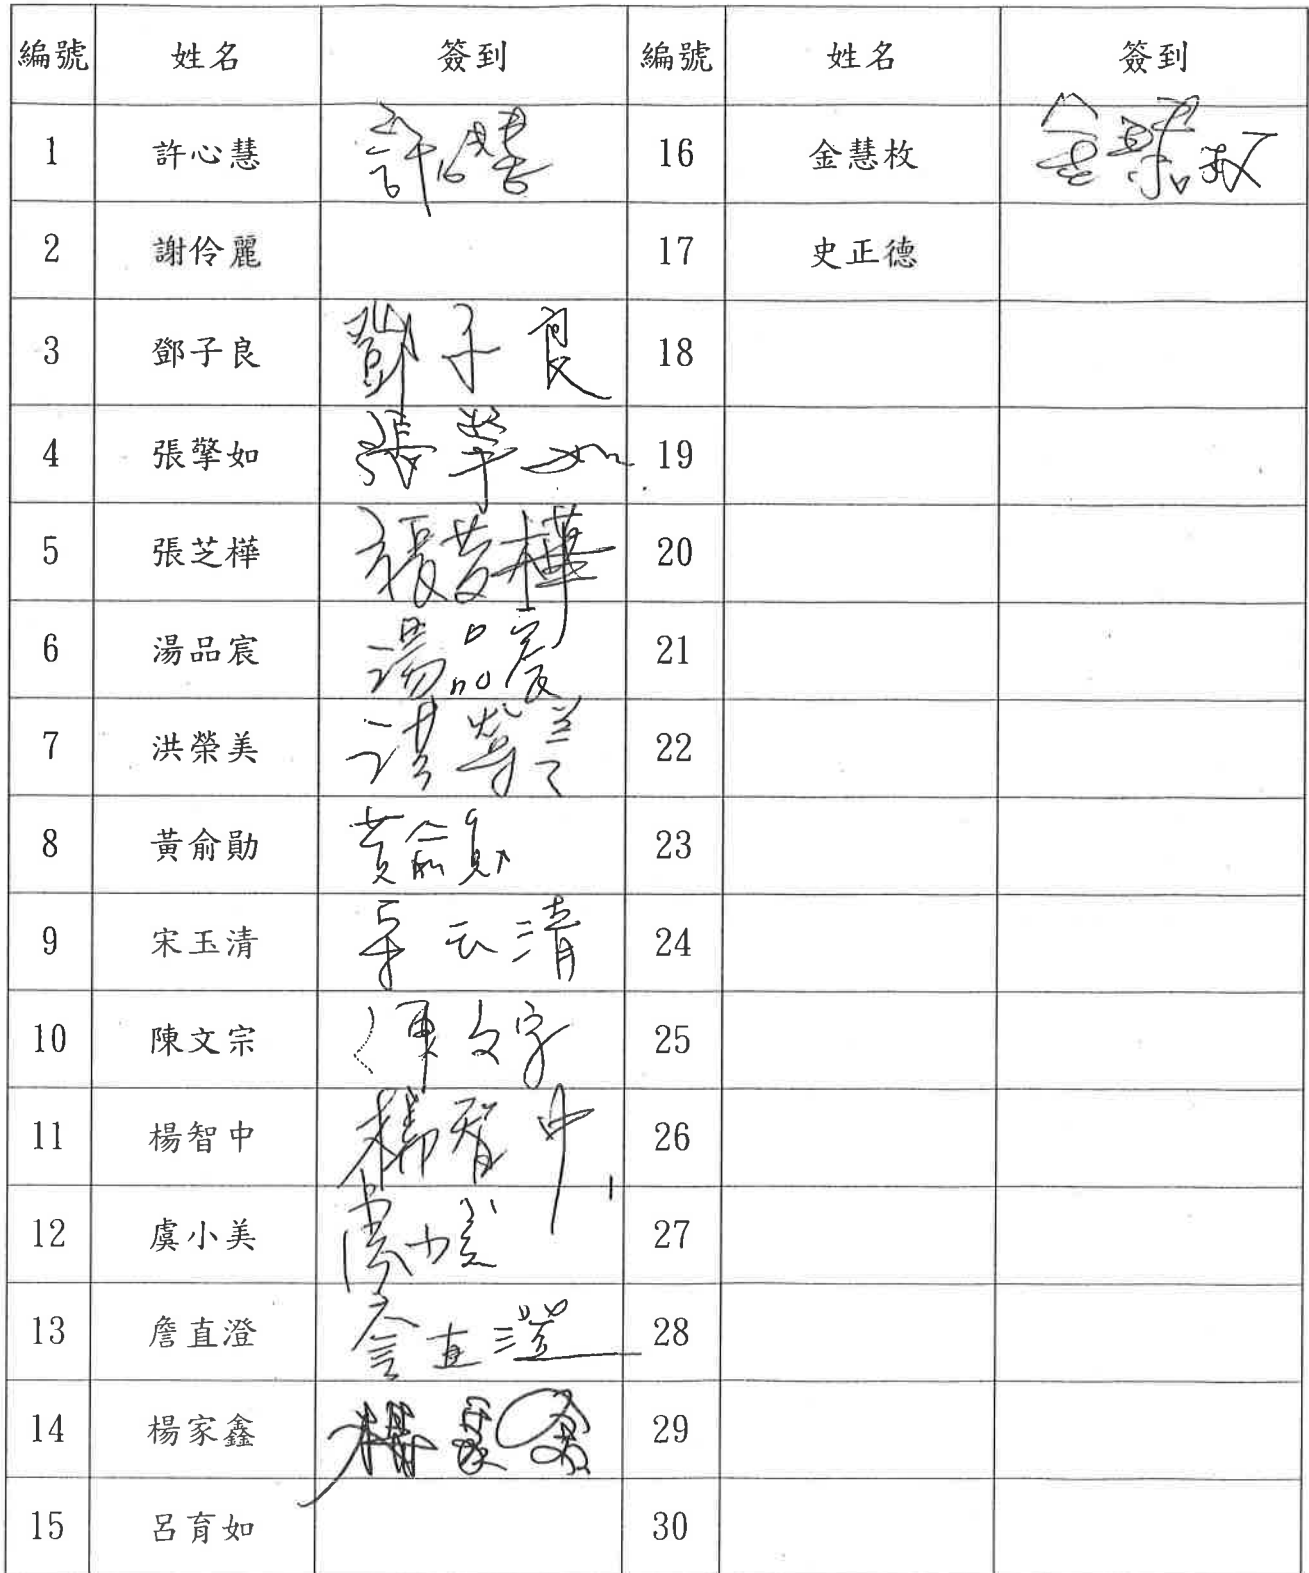 編號 姓名 簽到 編號 姓名 簽到
1 許心慧 許心慧 16 金慧枚 金慧枚
2 謝伶麗 17 史正德
3 鄧子良 鄧子良 18
4 張擎如 張擎如 19
5 張芝樺 張芝樺 20
6 湯品宸 湯品宸 21
7 洪榮美 洪榮美 22
8 黃俞勛 黃俞勛 23
9 宋玉清 宋玉清 24
10 陳文宗 陳文宗 25
11 楊智中 楊智中 26
12 虞小美 虞小美 27
13 詹直澄 詹直澄 28
14 楊家鑫 楊家鑫 29
15 呂育如 30